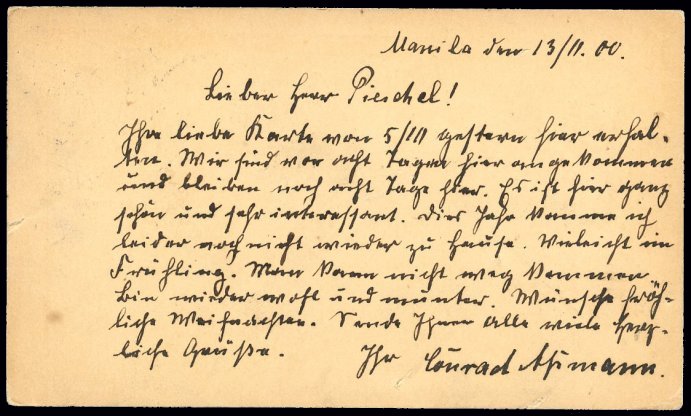 Manila den 13/11. 00.
Lieber Herr Pieschel!
Ihre liebe Karte von 5/III gestern hier erhal-
ten. Wir sind vor acht Tagen hier angekommen
und bleiben noch acht Tage hier. Es ist hier ganz
schön und sehr interessant. Dies Jahr komme ich
leider noch nicht wieder zu Hause. Vieleicht im
Frühling. Man kann nicht weg kommen
Bin wieder wohl und munter. Wünsche fröh-
liche Weihnachten. Sende Ihnen Alle viele herz-
liche Grüße. Ihr Conrad Aßmann.